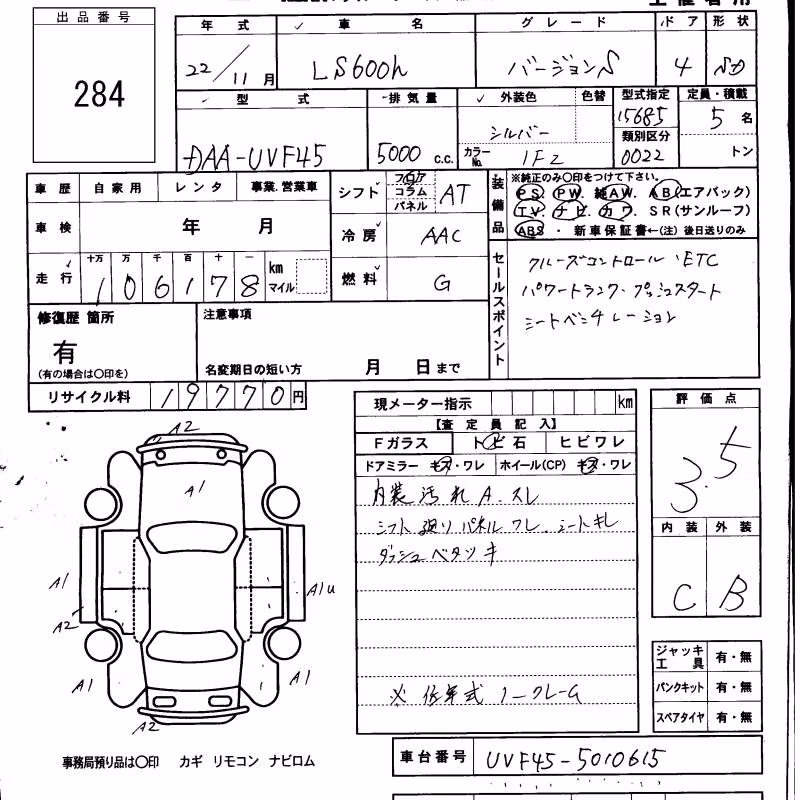 出品番号
284
年式 車名 グレード ドア 形状
22/11月 LS600h バージョンS 4 SD
型式 排気量 外装色 色替 型式指定 定員・積載
DAA-UVF45 5000 c.c. シルバー 15685 5 名
カラーNo. 1F2 類別区分 0022 トン
車歴 自家用 レンタ 事業.営業車
シフト フロア コラム パネル AT
装備品 ※純正のみ〇印をつけて下さい。
PS. PW. 純AW. AB(エアバック)
TV. ナビ. カワ. SR(サンルーフ)
ABS ・ 新車保証書←(注) 後日送りのみ
車検 年 月
冷房 AAC
走行 十万 万 千 百 十 一
106178 km マイル
燃料 G
セールスポイント
クルーズコントロール、ETC
パワートランク・プッシュスタート
シートベンチレーション
修復歴 箇所
有
(有の場合は〇印を)
注意事項
名変期日の短い方 月 日まで
リサイクル料 19770円
現メーター指示 km
【査定員記入】
Fガラス トビ石 ヒビワレ
ドアミラー キズ・ワレ ホイール(CP) キズ・ワレ
内装汚れA.スレ
シフト廻りパネルワレ、シートキレ
ダッシュベタツキ
※低年式ノークレーム
評価点
3.5
内装 外装
C B
A2
A1
A1
A2
A1u
A1
A1
A2
ジャッキ工具 有・無
パンクキット 有・無
スペアタイヤ 有・無
事務局預り品は〇印 カギ リモコン ナビロム
車台番号 UVF45-5010615